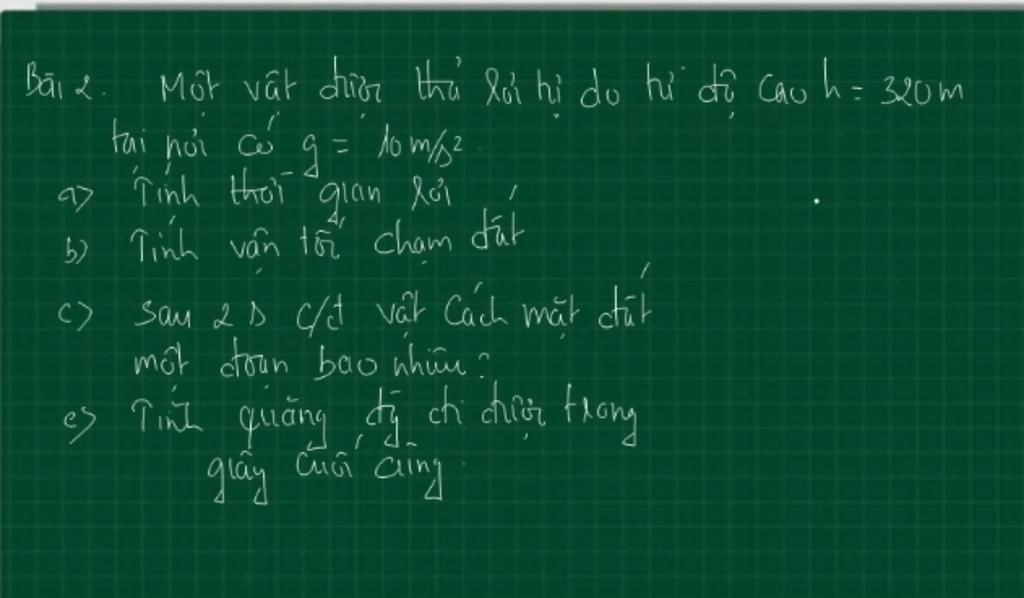 Bài 2. Một vật được thả rơi tự do từ độ cao h = 320 m
tại nơi có g = 10 m/s²
a) Tính thời gian rơi
b) Tính vận tốc chạm đất
c) sau 2 s c/đ vật cách mặt đất
một đoạn bao nhiêu?
e) Tính quãng đg đi được trong
giây cuối cùng.